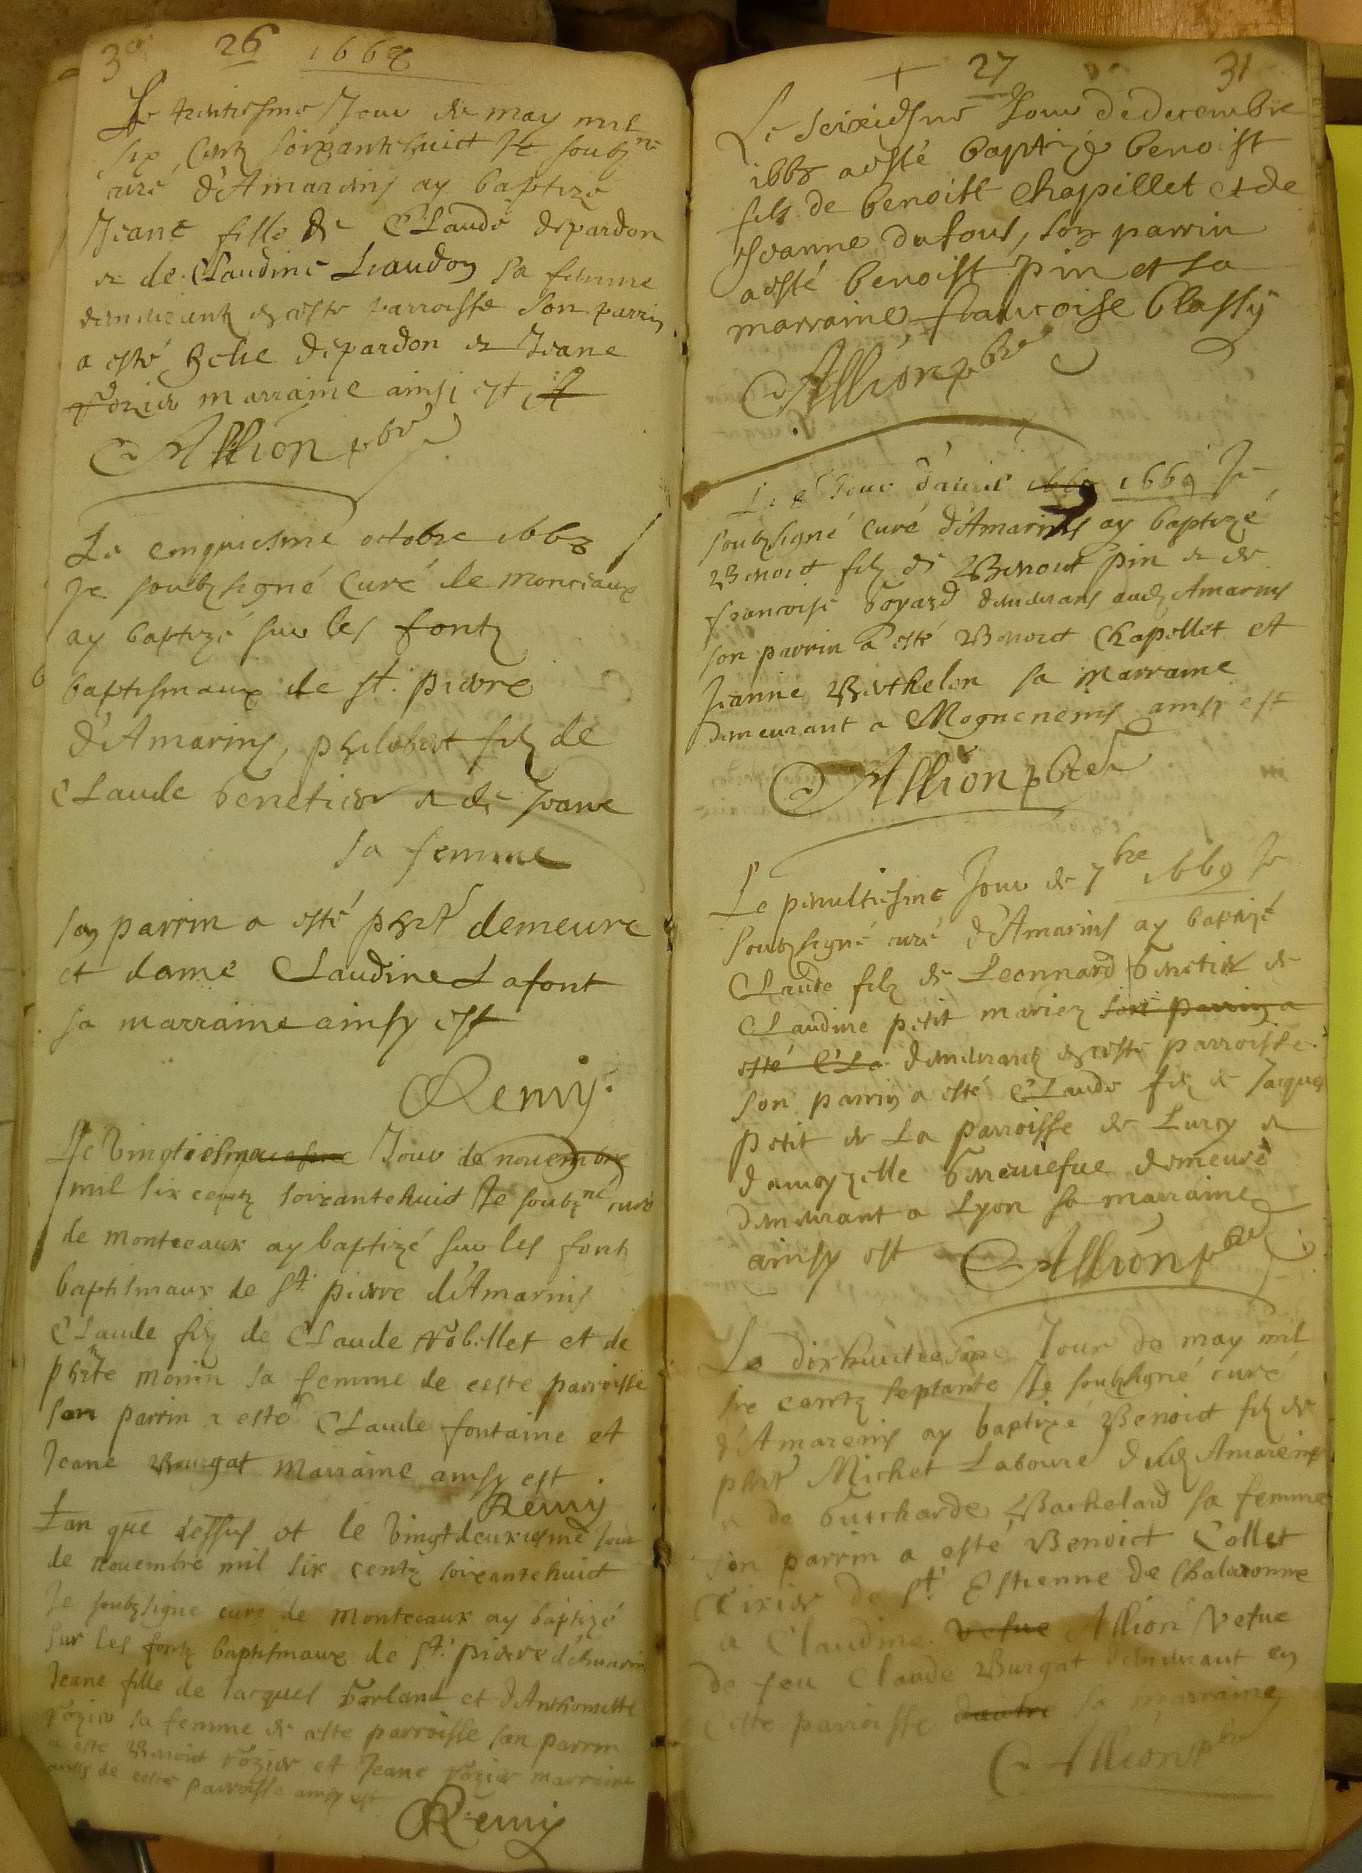 30 26 1668
Le trentiesme Jour de may mil
six Centz soixantehuict Je soubz.né
curé d'Amareins ay baptizé
Jeane fille de Claude depardon
et de Claudine Liaudon sa femme
demeurantz en ceste parroisse son parrin
a esté depardon et Jeane
rozier marraine ainsi est
Allion pbre
Le cinquiesme octobre 1668
Je soubzsigné Curé de monceaux
ay baptizé sur les fontz
baptismaux de st. pierre
d'Amarins, philibert filz de
Claude benetier et de Jeane
sa femme
son parrin a esté phrt demeure
et dame Claudine Lafont
sa marraine ainsy est
Remy.
Le vingtiesme Jour de novembre
mil six centz soixantehuict Je soubz.né curé
de monteeaux ay baptizé sur les fontz
baptismaux de st. pierre d'Amarins
Claude filz de Claude robillet et de
phrte monin sa femme de ceste parroisse
son parrin a esté Claude fontaine et
Jeane Bourgat marraine ainsy est
Remy
L'an que dessus et le vingtdeuxiesme jour
de novembre mil six centz soixantehuict
Je soubzsigne curé de monteeaux ay baptizé
sur les fontz baptismaux de st. pierre d'Amarins
Jeane fille de Jacques et d'Anthoinette
rozier sa femme de ceste parroisse son parrin
a esté Benoict rozier et Jeane rozier marraine
de ceste parroisse ainsy est
Remy
27 31
Le seixiesme Jour de decembre
1668 a esté baptizé benoist
filz de benoist Chapillet et de
Jeanne dufour, son parrin
a esté benoist pin et sa
marraine francoise blassy
Allion pbre
Le Jour d'avril 1669 1669 Je
soubzsigné Curé d'Amarins ay baptizé
Benoict filz de Benoict pin et de
francoise boyard demeurans audt Amarins
son parrin a esté Benoict Chapellet et
Jeanne Berthelon sa marraine
demeurant a Mognenens ainsy est
Allion pbre
Le penultiesme Jour de 7bre 1669 Je
soubzsigné curé d'Amarins ay baptizé
Claude filz de Leonnard benetier et
Claudine petit mariez son parrin a
esté Cla demeurantz en ceste parroisse.
son parrin a esté Claude filz de Jacques
petit de La parroisse de Lurcy et
damoyzelle demeure
demeurant a Lyon sa marraine
ainsy est Allion pbre
Le dixhuictiesme Jour de may mil
six centz septante Je soubzsigné curé
d'Amareins ay baptizé Benoict filz de
phrt Michet Laboure dudt Amareins
et de guicharde Bachelard sa femme
son parrin a esté Benoict Collet
de st. Estienne de Chalaronne
et Claudine vefue Allion vefue
de feu Claude Burgat demeurant en
Ceste parroisse sa marraine
Allion pbre